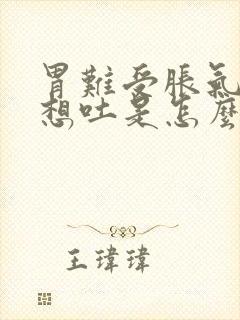 胃難受脹氣
想吐是怎麼
王瑋瑋